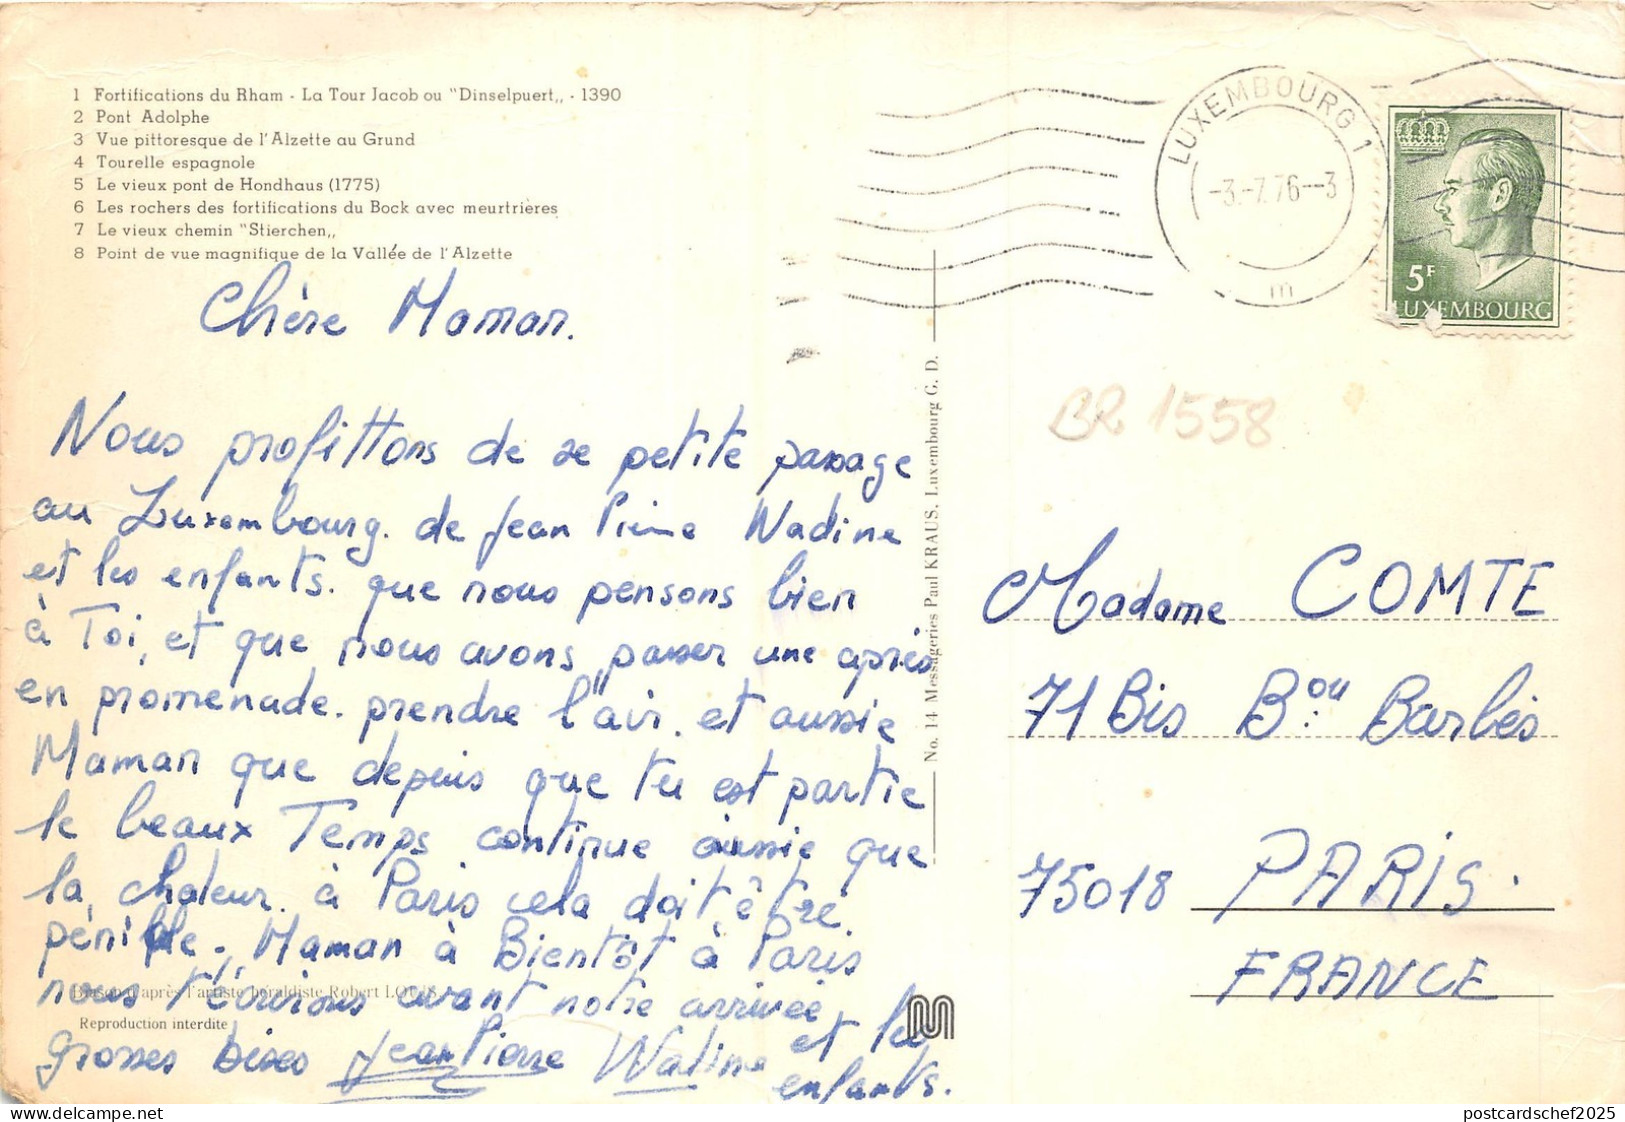 1 Fortifications du Rham - La Tour Jacob ou "Dinselpuert,, - 1390
2 Pont Adolphe
3 Vue pittoresque de l'Alzette au Grund
4 Tourelle espagnole
5 Le vieux pont de Hondhaus (1775)
6 Les rochers des fortifications du Bock avec meurtrières
7 Le vieux chemin "Stierchen,,
8 Point de vue magnifique de la Vallée de l'Alzette
Chère Maman.
Nous profittons de se petite passage
au Luxembourg. de Jean Pierre Nadine
et les enfants. que nous pensons bien
à Toi, et que nous avons passer une après
en promenade. prendre l'air. et aussie
Maman que depuis que tu est partie
le beaux Temps continue aussie que
la chaleur. à Paris cela doit être
pénible. Maman à Bientôt à Paris
nous t'écrirons avant notre arrivée
grosses bises Jean Pierre Nadine et les
enfants.
Blason d'après l'artiste héraldiste Robert LOUIS
Reproduction interdite
No. 14 Messageries Paul KRAUS. Luxembourg G. D.
LUXEMBOURG 1
-3.-7.76--3
m
5F
LUXEMBOURG
BR 1558
Madame COMTE
71 Bis Bou: Barbès
75018 PARIS.
FRANCE
postcardschef2025